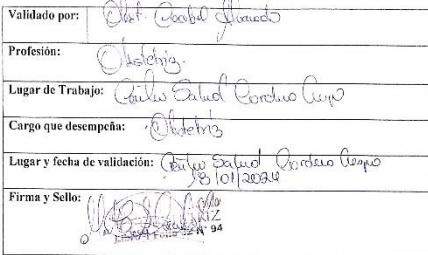 Validado por: Obst. Isabel Alvarado
Profesión: Obstetriz.
Lugar de Trabajo: Centro Salud Cordero Crespo
Cargo que desempeña: Obstetriz
Lugar y fecha de validación: Centro Salud Cordero Crespo
8/01/2024
Firma y Sello:
N° 94